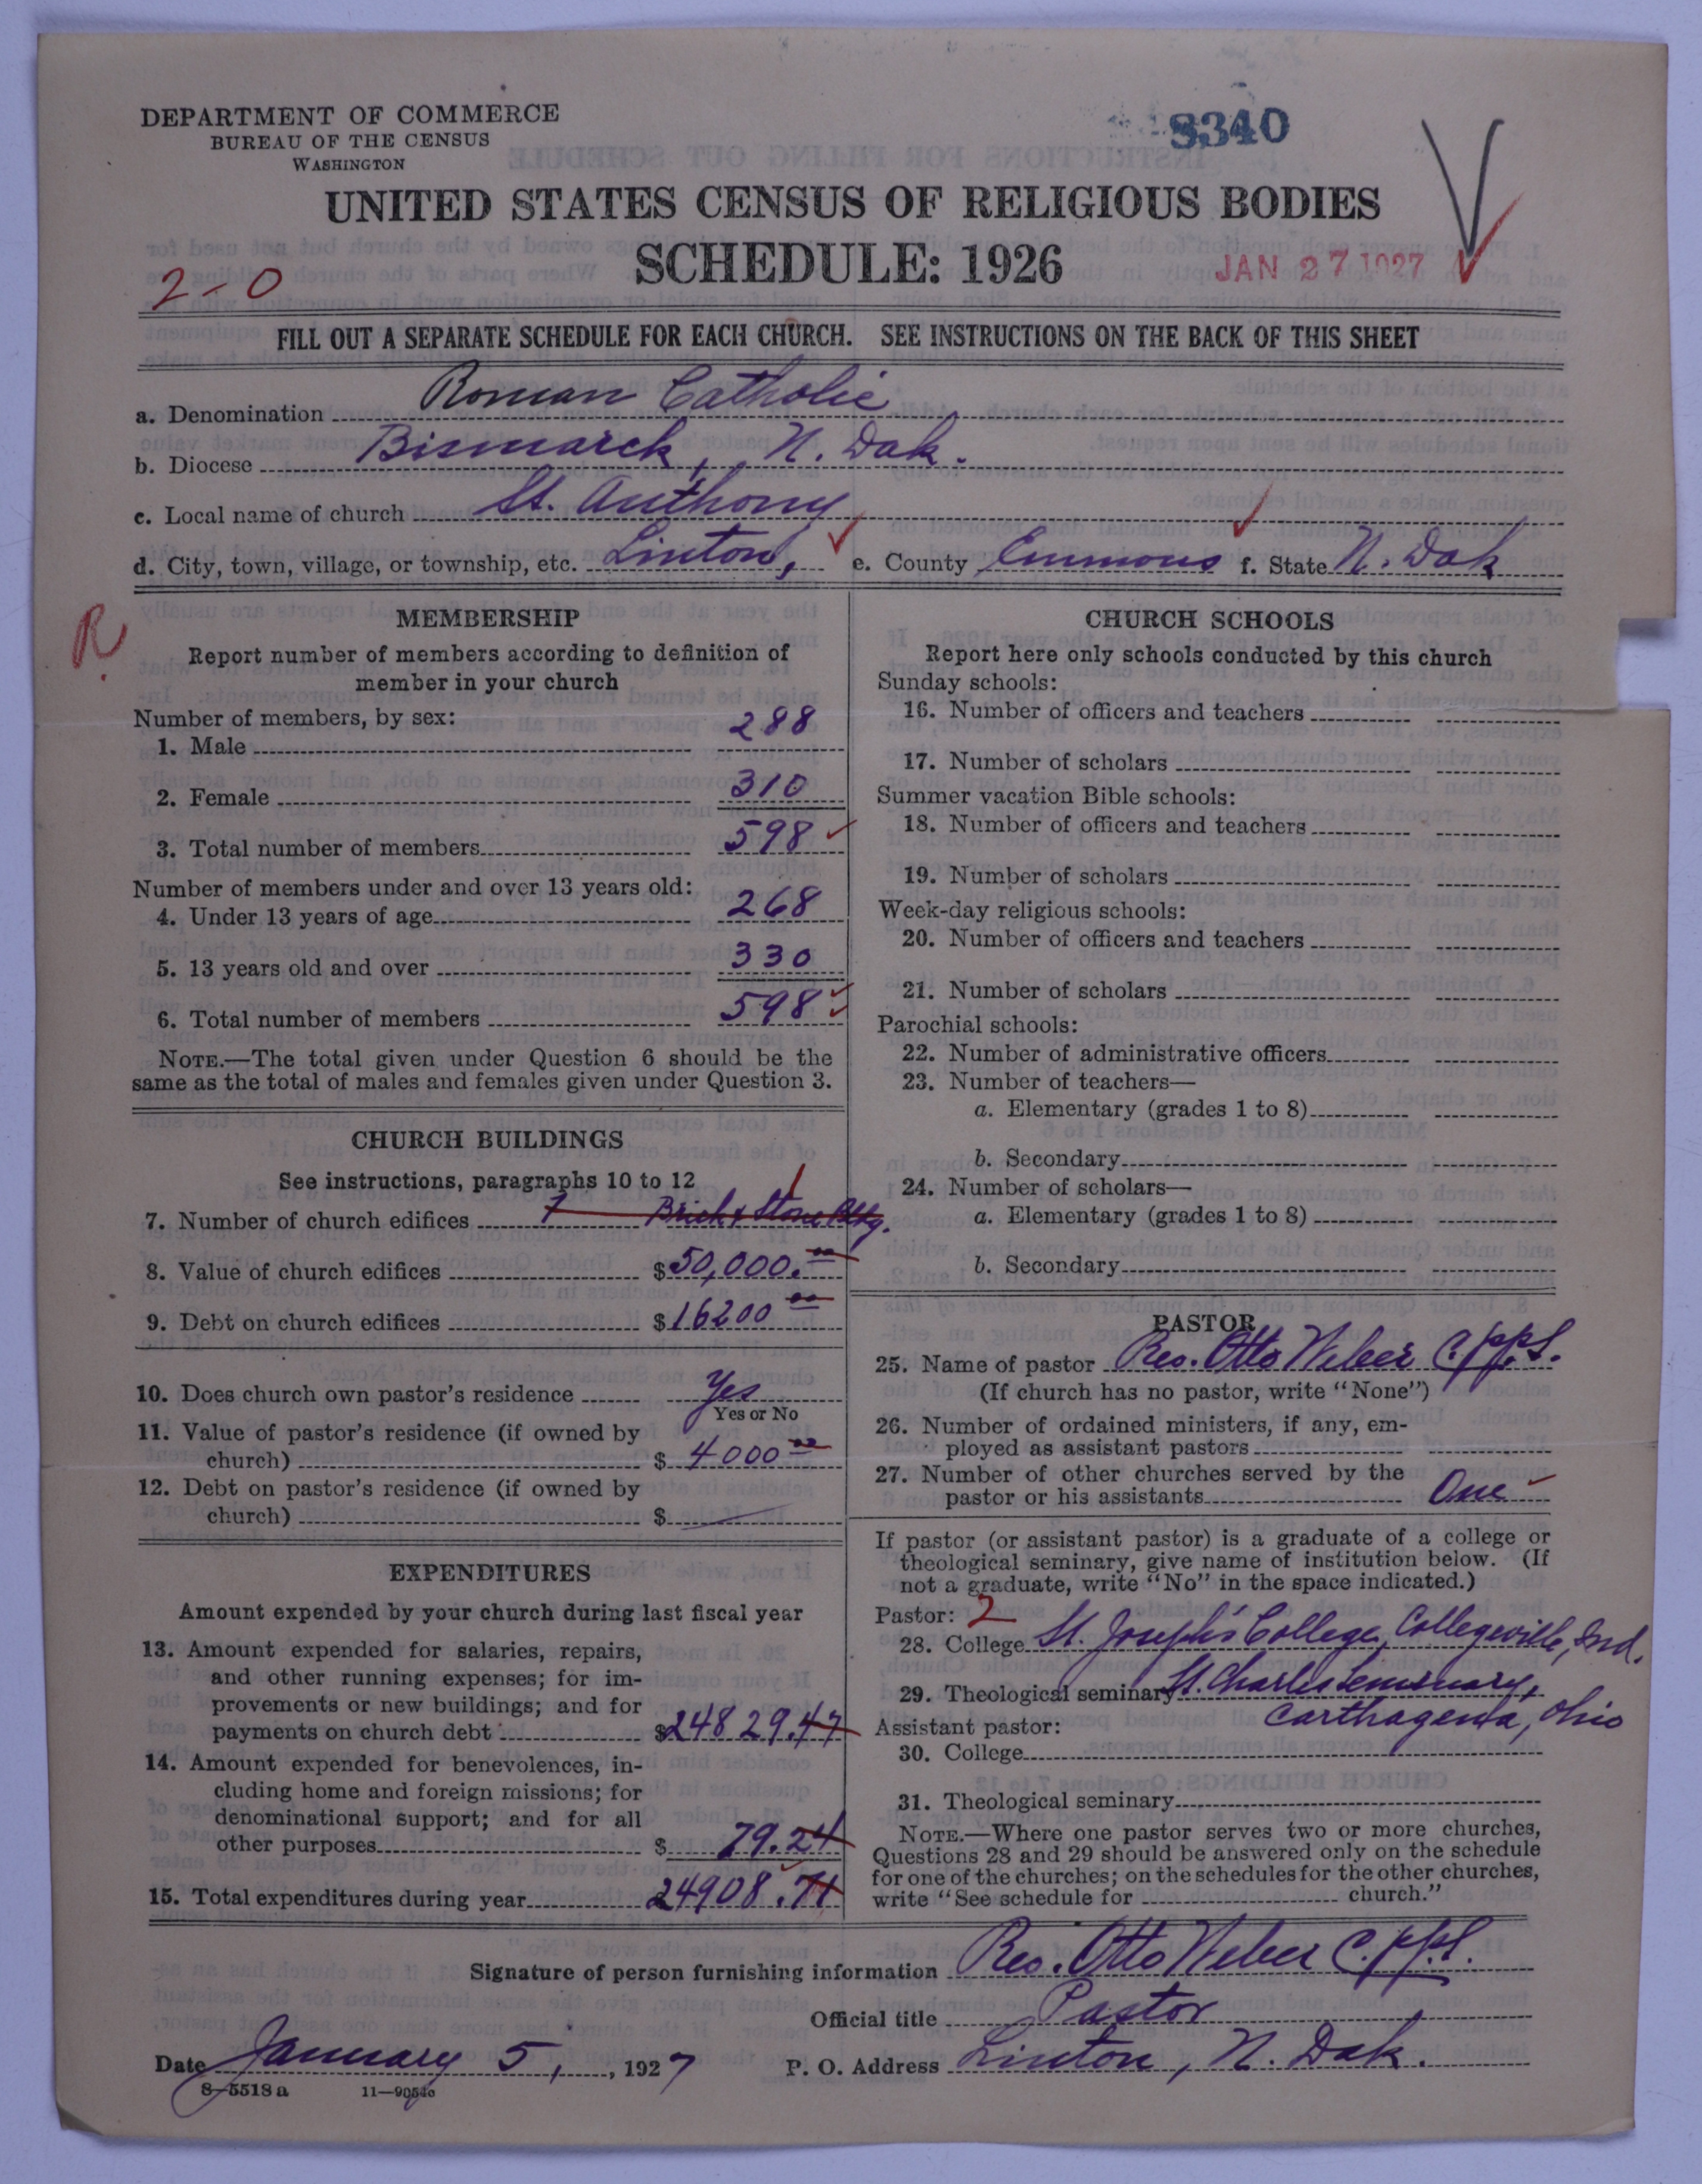 DEPARTMENT OF COMMERCE
BUREAU OF THE CENSUS
WASHINGTON
8340
UNITED STATES CENSUS OF RELIGIOUS BODIES
SCHEDULE: 1926
JAN 27 1927
2-0
FILL OUT A SEPARATE SCHEDULE FOR EACH CHURCH. SEE INSTRUCTIONS ON THE BACK OF THIS SHEET
a. Denomination Roman Catholic
b. Diocese Bismarck, N. Dak.
c. Local name of church St. Anthony
d. City, town, village, or township, etc. Linton, e. County Emmons f. State N. Dak
R
MEMBERSHIP
Report number of members according to definition of
member in your church
Number of members, by sex:
1. Male 288
2. Female 310
3. Total number of members 598
Number of members under and over 13 years old:
4. Under 13 years of age 268
5. 13 years old and over 330
6. Total number of members 598
NOTE.—The total given under Question 6 should be the
same as the total of males and females given under Question 3.
CHURCH BUILDINGS
See instructions, paragraphs 10 to 12
7. Number of church edifices 1 Brick & Stone Bldg.
8. Value of church edifices $50,000.00
9. Debt on church edifices $16200 00
10. Does church own pastor's residence Yes
Yes or No
11. Value of pastor's residence (if owned by
church) $ 4000 00
12. Debt on pastor's residence (if owned by
church) $
EXPENDITURES
Amount expended by your church during last fiscal year
13. Amount expended for salaries, repairs,
and other running expenses; for im-
provements or new buildings; and for
payments on church debt $24829.47
14. Amount expended for benevolences, in-
cluding home and foreign missions; for
denominational support; and for all
other purposes $ 79.24
15. Total expenditures during year 24908.71
CHURCH SCHOOLS
Report here only schools conducted by this church
Sunday schools:
16. Number of officers and teachers
17. Number of scholars
Summer vacation Bible schools:
18. Number of officers and teachers
19. Number of scholars
Week-day religious schools:
20. Number of officers and teachers
21. Number of scholars
Parochial schools:
22. Number of administrative officers
23. Number of teachers—
a. Elementary (grades 1 to 8)
b. Secondary
24. Number of scholars—
a. Elementary (grades 1 to 8)
b. Secondary
PASTOR
25. Name of pastor Rev. Otto Weber C.PP.S.
(If church has no pastor, write "None")
26. Number of ordained ministers, if any, em-
ployed as assistant pastors
27. Number of other churches served by the
pastor or his assistants One
If pastor (or assistant pastor) is a graduate of a college or
theological seminary, give name of institution below. (If
not a graduate, write "No" in the space indicated.)
Pastor: 2
28. College St. Joseph's College, Collegeville, Ind.
29. Theological seminary St. Charles Seminary,
Carthagena, Ohio
Assistant pastor:
30. College
31. Theological seminary
NOTE.—Where one pastor serves two or more churches,
Questions 28 and 29 should be answered only on the schedule
for one of the churches; on the schedules for the other churches,
write "See schedule for church."
Signature of person furnishing information Rev. Otto Weber C.PP.S.
Official title Pastor
Date January 5, 1927 P. O. Address Linton, N. Dak.
8-5518a